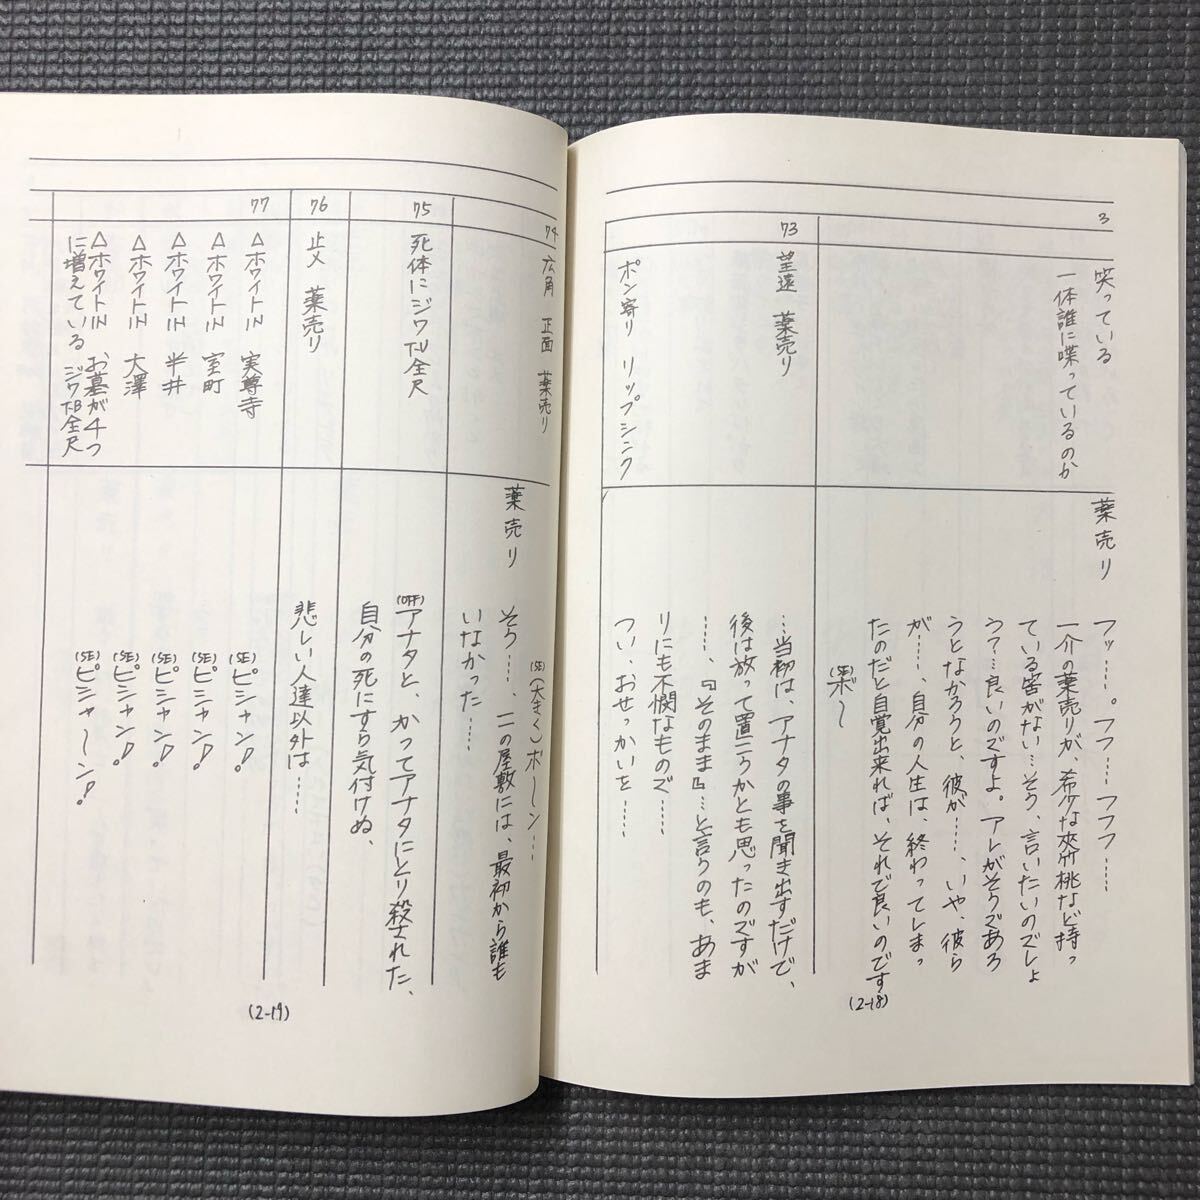 3
笑っている
一体誰に喋っているのか
薬売り
フッ……。フフ……フフフ……
一介の薬売りが、希少な夾竹桃など持っ
ている筈がない…そう、言いたいのでしょ
う?…良いのですよ。アレがそうであろ
うとなかろうと、彼が……、いや、彼ら
が……、自分の人生は、終わってしまっ
たのだと自覚出来れば、それで良いのです
(SE)ボ〜
73
望遠 薬売り
…当初は、アナタの事を聞き出すだけで、
後は放って置こうかとも思ったのですが
……、『そのまま』…と言うのも、あま
りにも不憫なもので……
つい、おせっかいを……
ポン寄り リップシンク
(2-18)
74
広角 正面 薬売り
(SE)(大きく)ボ〜ン…
薬売り
そう……、この屋敷には、最初から誰も
いなかった……
75
死体にジワT.U全尺
(OFF)アナタと、かつてアナタにとり殺された、
自分の死にすら気付けぬ、
76
止メ 薬売り
悲しい人達以外は……
77
△ホワイトIN 実尊寺
(SE)ピシャン!
△ホワイトIN 室町
(SE)ピシャン!
△ホワイトIN 半井
(SE)ピシャン!
△ホワイトIN 大澤
(SE)ピシャン!
△ホワイトIN お墓が4つ
に増えている ジワT.B全尺
(SE)ピシャ〜ン!
(2-19)